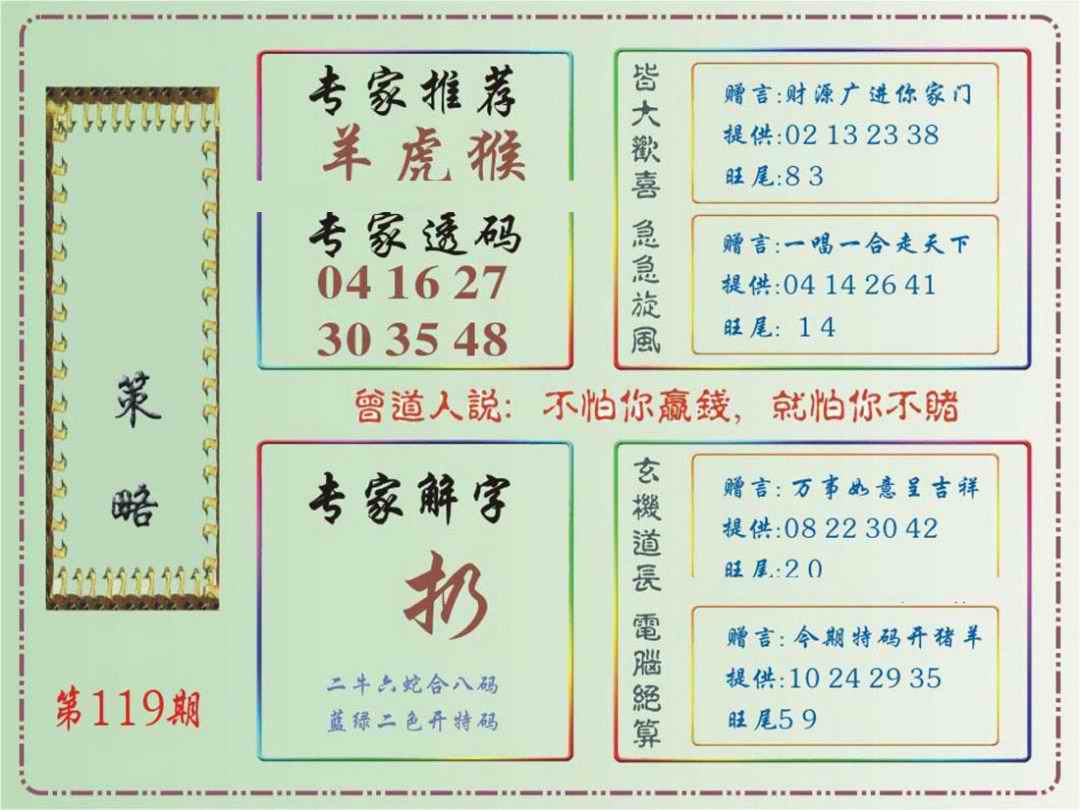 策
略
第119期
专家推荐
羊虎猴
专家透码
04 16 27
30 35 48
皆大歡喜
赠言:财源广进你家门
提供:02 13 23 38
旺尾:8 3
急急旋風
赠言:一唱一合走天下
提供:04 14 26 41
旺尾: 1 4
曾道人説: 不怕你贏錢, 就怕你不賭
专家解字
扔
二牛六蛇合八码
蓝绿二色开特码
玄機道長
赠言: 万事如意呈吉祥
提供:08 22 30 42
旺尾:2 0
電腦絕算
赠言: 今期特码开猪羊
提供:10 24 29 35
旺尾5 9